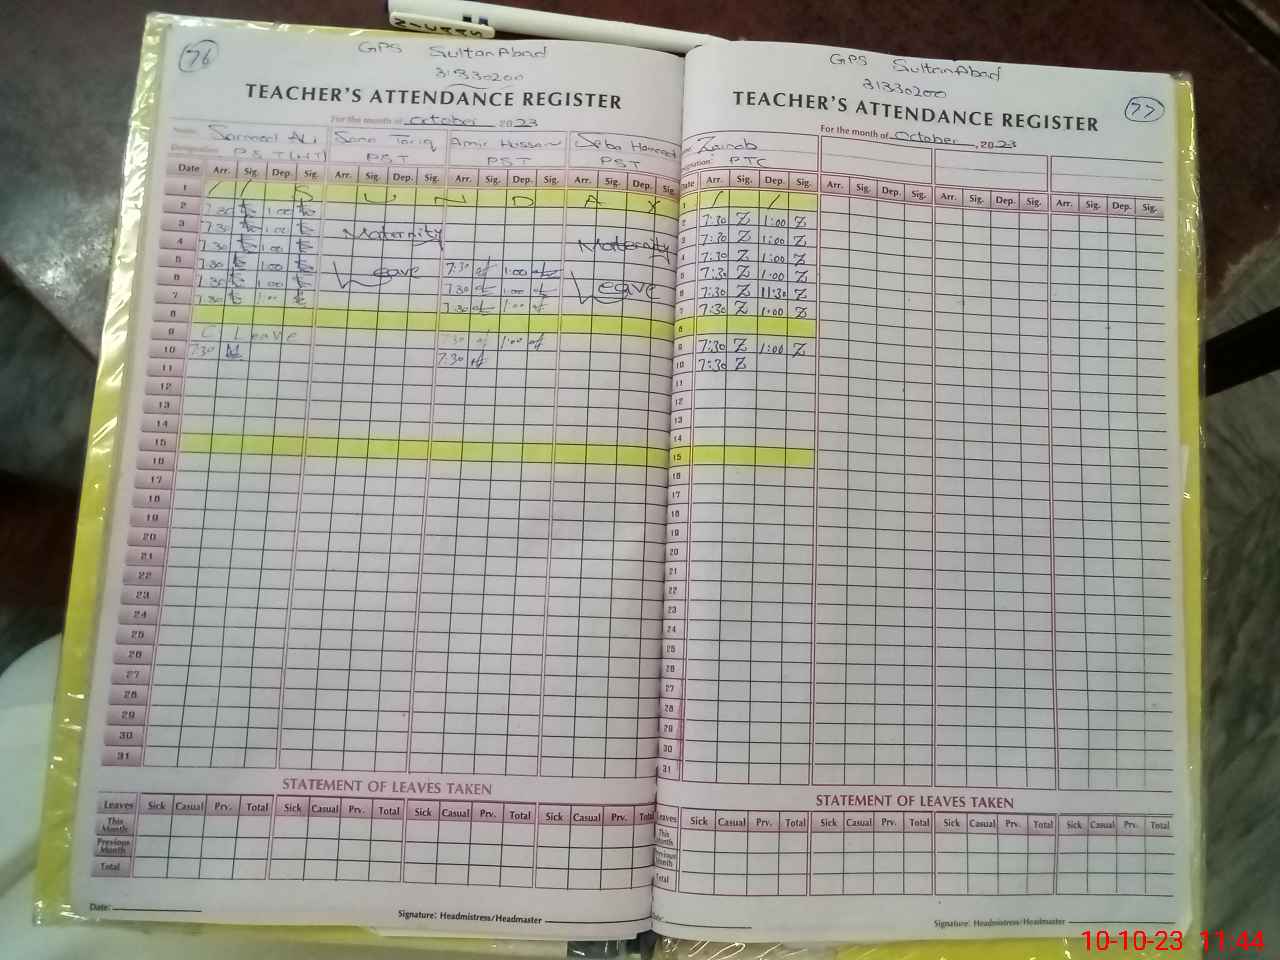 76
GPS SultanAbad
31330200
TEACHER'S ATTENDANCE REGISTER
For the month of October 2023
Name: Sarmad ALi Sana Tariq Amir Hussain Saba Hameed
Designation: P.S.T (HT) P.S.T PST PST
Date Arr. Sig. Dep. Sig. Arr. Sig. Dep. Sig. Arr. Sig. Dep. Sig. Arr. Sig. Dep. Sig.
1 / / S U N D A Y
2 7:30 1:00
3 7:30 1:00 Maternity
4 7:30 1:00 Maternity
5 7:30 1:00 Leave 7:30 1:00
6 7:30 1:00 7:30 1:00 Leave
7 7:30 1:00 7:30 1:00
8
9 C Leave 7:30 1:00
10 7:30 7:30
11
12
13
14
15
16
17
18
19
20
21
22
23
24
25
26
27
28
29
30
31
STATEMENT OF LEAVES TAKEN
Leaves Sick Casual Prv. Total Sick Casual Prv. Total Sick Casual Prv. Total Sick Casual Prv. Total
This Month
Previous Month
Total
Date:
Signature: Headmistress/Headmaster
GPS SultanAbad
31330200
77
TEACHER'S ATTENDANCE REGISTER
For the month of October, 2023
Zainab
Designation: PTC
Date Arr. Sig. Dep. Sig. Arr. Sig. Dep. Sig. Arr. Sig. Dep. Sig. Arr. Sig. Dep. Sig.
1 / /
2 7:30 Z 1:00 Z
3 7:30 Z 1:00 Z
4 7:30 Z 1:00 Z
5 7:30 Z 1:00 Z
6 7:30 Z 11:30 Z
7 7:30 Z 1:00 Z
8
9 7:30 Z 1:00 Z
10 7:30 Z
11
12
13
14
15
16
17
18
19
20
21
22
23
24
25
26
27
28
29
30
31
STATEMENT OF LEAVES TAKEN
Leaves Sick Casual Prv. Total Sick Casual Prv. Total Sick Casual Prv. Total Sick Casual Prv. Total
This Month
Previous Month
Total
Date:
Signature: Headmistress/Headmaster
10-10-23 11:44